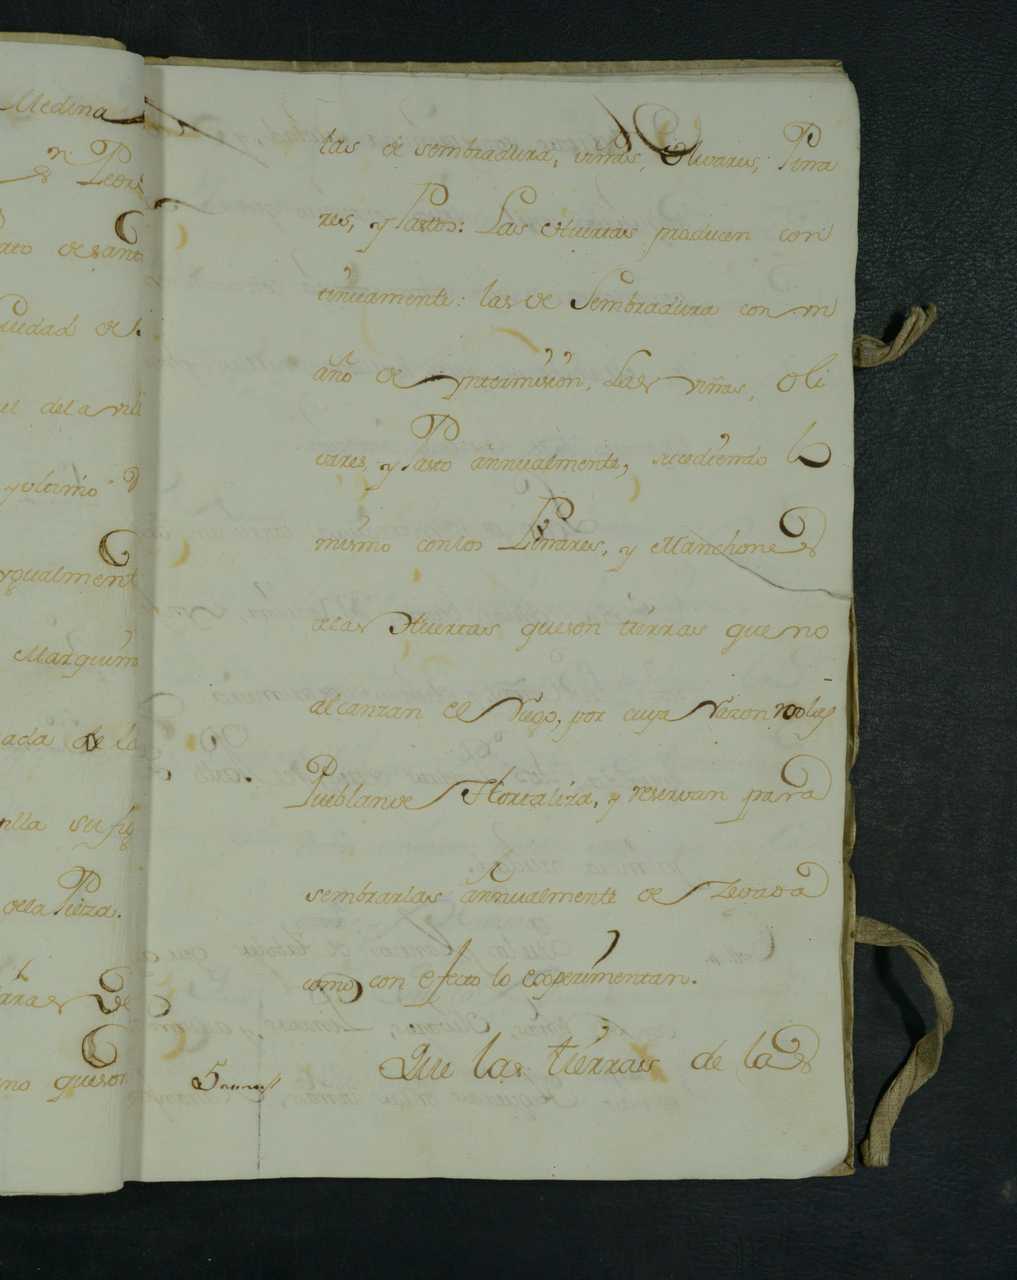 Medina
Leon
de sant
ciudad de
el de la vill
y ultimo
ygualment
Marquim
ada de la
illa su fig
de la Pieza.
rras De
mo que son
tas de sembradura, viñas, Olivares, Pina
res, y Pastos: Las Huertas producen con
tinuamente: las de Sembradura con un
año de yntermision, Las viñas, Oli
vares, y Pasto annualmente, sucediendo lo
mismo con los Pinares, y Manchones
de las Huertas que son tierras que no
alcanzan el Riego, por cuya Razon no las
Pueblan de Hortaliza, y reservan para
sembrarlas annualmente de Zevada
como con efecto lo experimentan.
5
Que las tierras de las